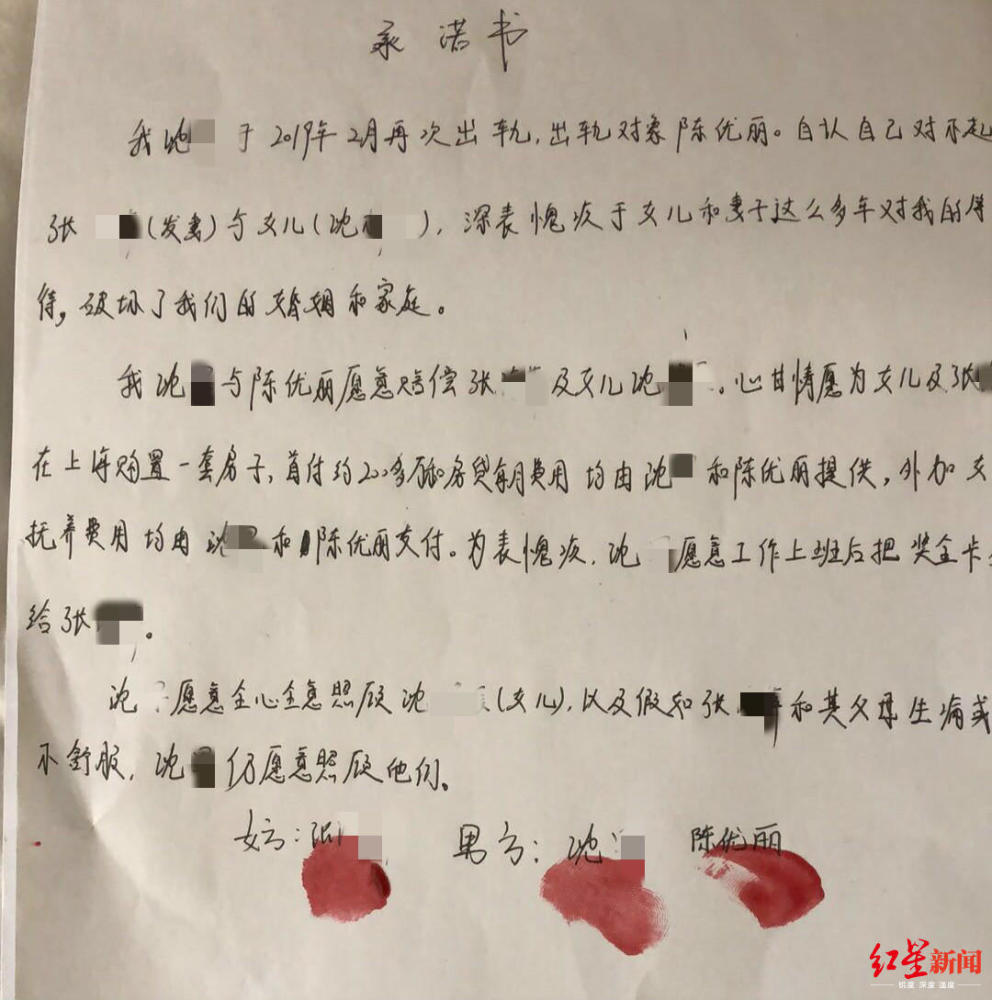 承诺书
我沈 于2019年2月再次出轨,出轨对象陈优丽。自认自己对不起
张 (发妻)与女儿(沈 ),深表愧疚于女儿和妻子这么多年对我的
待,破坏了我们的婚姻和家庭。
我沈 与陈优丽愿意赔偿张 及女儿沈 。心甘情愿为女儿及张
在上海购置一套房子,首付约200多万和房贷每月费用均由沈 和陈优丽提供,外加女
抚养费用均由沈 和陈优丽支付。为表愧疚,沈 愿意工作上班后把奖金卡
给张 。
沈 愿意全心全意照顾沈 (女儿),以及假如张 和其父母生病或
不舒服,沈 仍愿意照顾他们。
女方:张 男方:沈 陈优丽
红星新闻
锐度 深度 温度